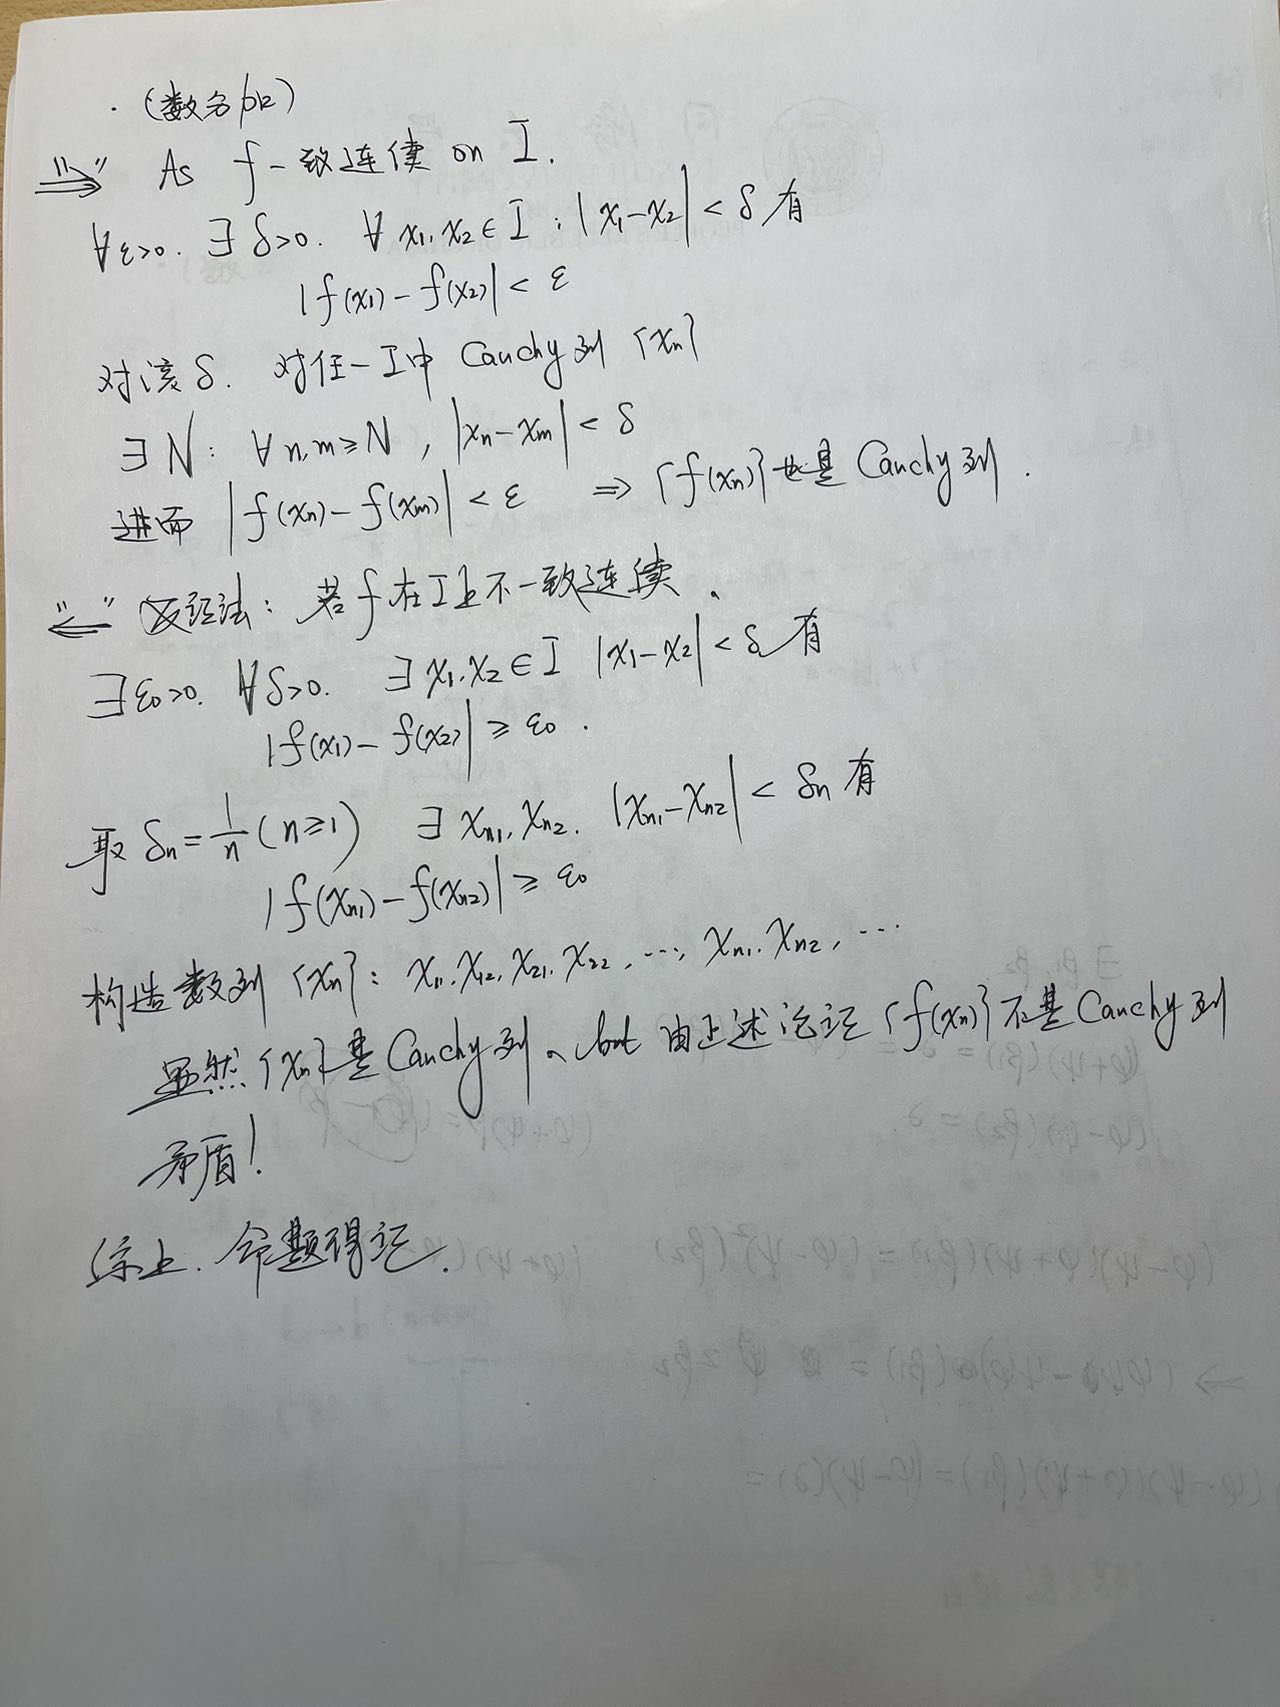 ·(数分 )
"⇒" As f一致连续 on I.
∀ε>0. ∃δ>0. ∀ x₁,x₂∈I : |x₁-x₂|<δ 有
|f(x₁)-f(x₂)|<ε
对该δ. 对任一I中 Cauchy列 {xₙ}
∃N: ∀n,m≥N, |xₙ-xₘ|<δ
进而 |f(xₙ)-f(xₘ)|<ε ⇒ {f(xₙ)}也是 Cauchy列.
"⇐" 反证法: 若f在I上不一致连续.
∃ε₀>0. ∀δ>0. ∃x₁,x₂∈I |x₁-x₂|<δ 有
|f(x₁)-f(x₂)|≥ε₀.
取 δₙ=1/n (n≥1) ∃ xₙ₁, xₙ₂. |xₙ₁-xₙ₂|<δₙ 有
|f(xₙ₁)-f(xₙ₂)|≥ε₀
构造数列{xₙ}: x₁₁, x₁₂, x₂₁, x₂₂, …, xₙ₁, xₙ₂, …
显然{xₙ}是Cauchy列, but 由上述论证{f(xₙ)}不是Cauchy列
矛盾!
综上. 命题得证.